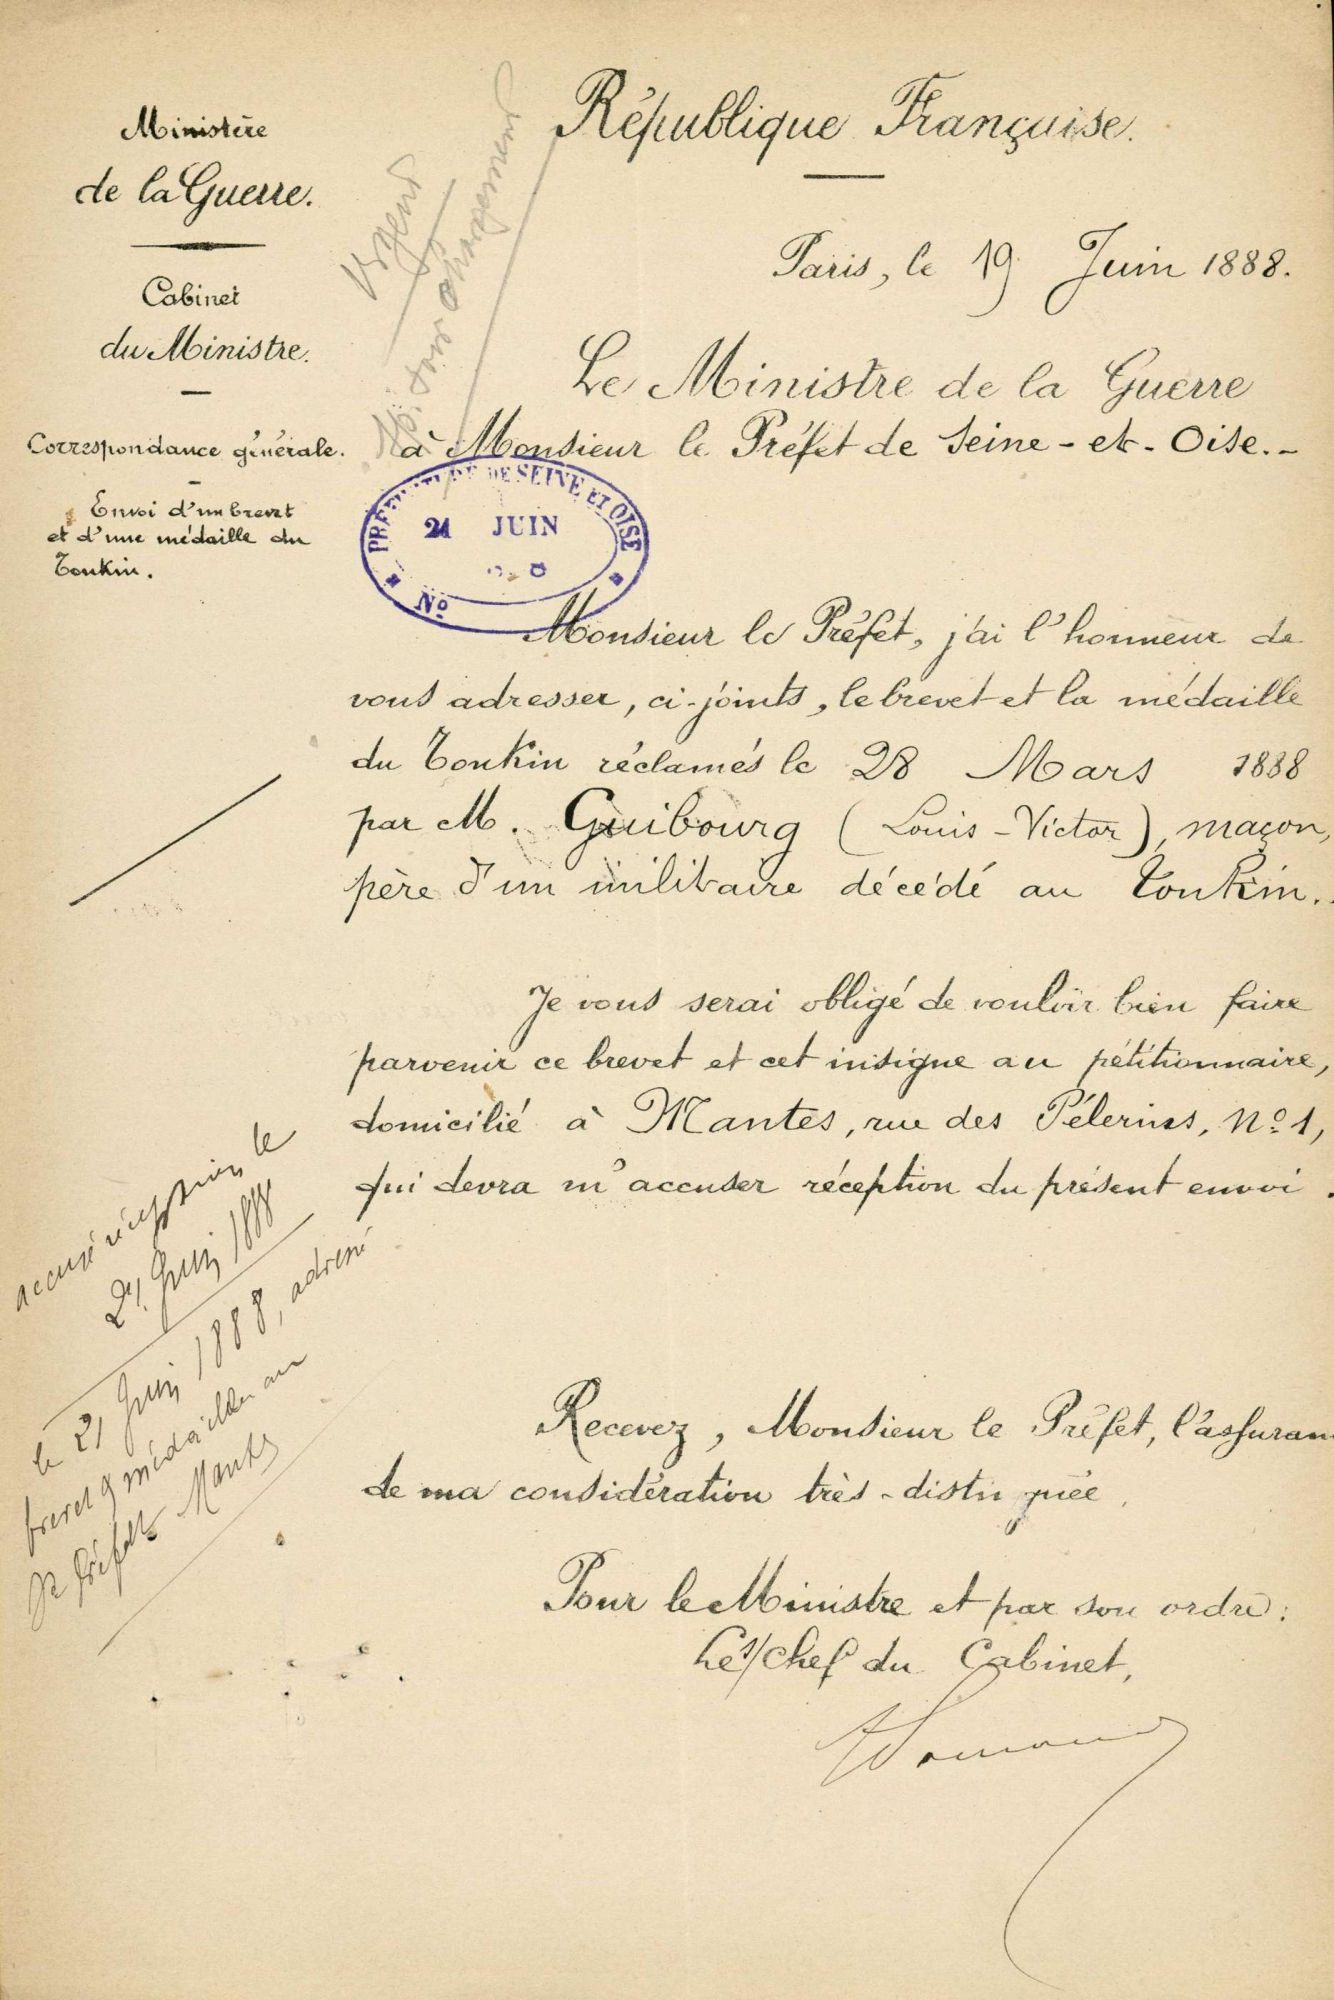 Ministère
de la Guerre.
Cabinet
du Ministre.
Correspondance générale.
Envoi d'un brevet
et d'une médaille du
Tonkin.
Urgent
République Française.
Paris, le 19 Juin 1888.
Le Ministre de la Guerre
à Monsieur le Préfet de Seine-et-Oise.-
PRÉFECTURE DE SEINE ET OISE
21 JUIN
No
Monsieur le Préfet, j'ai l'honneur de
vous adresser, ci-joints, le brevet et la médaille
du Tonkin réclamés le 28 Mars 1888
par M. Guibourg (Louis-Victor), maçon,
père d'un militaire décédé au Tonkin.
Je vous serai obligé de vouloir bien faire
parvenir ce brevet et cet insigne au pétitionnaire,
domicilié à Mantes, rue des Pélerins, No 1,
qui devra m'accuser réception du présent envoi.
accusé réception le
21 Juin 1888
le 21 Juin 1888, adressé
brevet & médaille au
Ss Préfet Mantes
Recevez, Monsieur le Préfet, l'assuran
de ma considération très-distinguée.
Pour le Ministre et par son ordre:
Le s/chef du Cabinet,